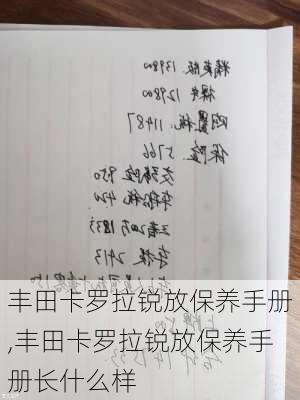 精英版 139800
裸车 129800
购置税: 11487
保险: 5766
交强险 950
车船税 420
三者200万 1833
车损 2413
丰田卡罗拉锐放保养手册
,丰田卡罗拉锐放保养手
册长什么样